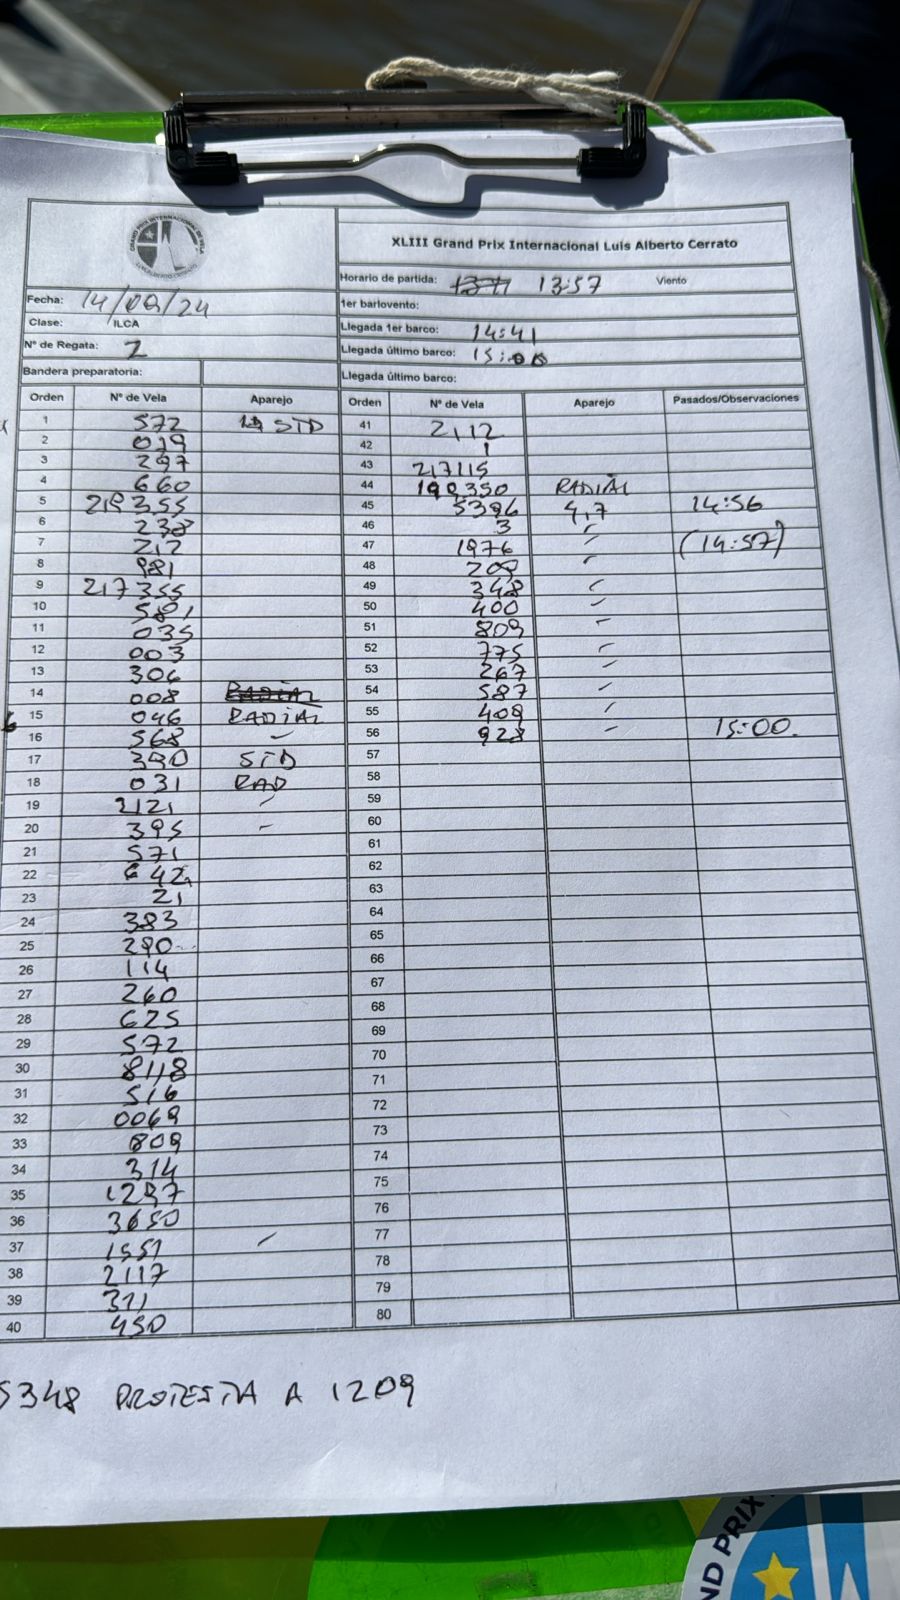 GRAND PRIX INTERNACIONAL DE VELA
LUIS ALBERTO CERRATO
XLIII Grand Prix Internacional Luis Alberto Cerrato
Horario de partida: 13:57 Viento
Fecha: 14/09/24
1er barlovento:
Clase: ILCA
Llegada 1er barco: 14:41
Nº de Regata: 2
Llegada último barco: 15:00
Bandera preparatoria:
Llegada último barco:
Orden Nº de Vela Aparejo
1 572 STD
2 019
3 297
4 660
5 219355
6 238
7 212
8 981
9 217355
10 581
11 035
12 003
13 306
14 008 RADIAL
15 046 RADIAL
16 568 -
17 390 STD
18 031 RAD
19 2121 -
20 395 -
21 571
22 642
23 21
24 383
25 290
26 114
27 260
28 625
29 572
30 8118
31 516
32 0069
33 809
34 314
35 1297
36 3650
37 1551 -
38 2117
39 311
40 450
Orden Nº de Vela Aparejo Pasados/Observaciones
41 2112
42 1
43 217115
44 190350 RADIAL
45 5396 4,7 14:56
46 3 "
47 1976 " (14:57)
48 209 "
49 348 "
50 400 "
51 809 "
52 775 "
53 267 "
54 587 "
55 409 "
56 928 " 15:00
57
58
59
60
61
62
63
64
65
66
67
68
69
70
71
72
73
74
75
76
77
78
79
80
5348 PROTESTA A 1209
ND PRIX